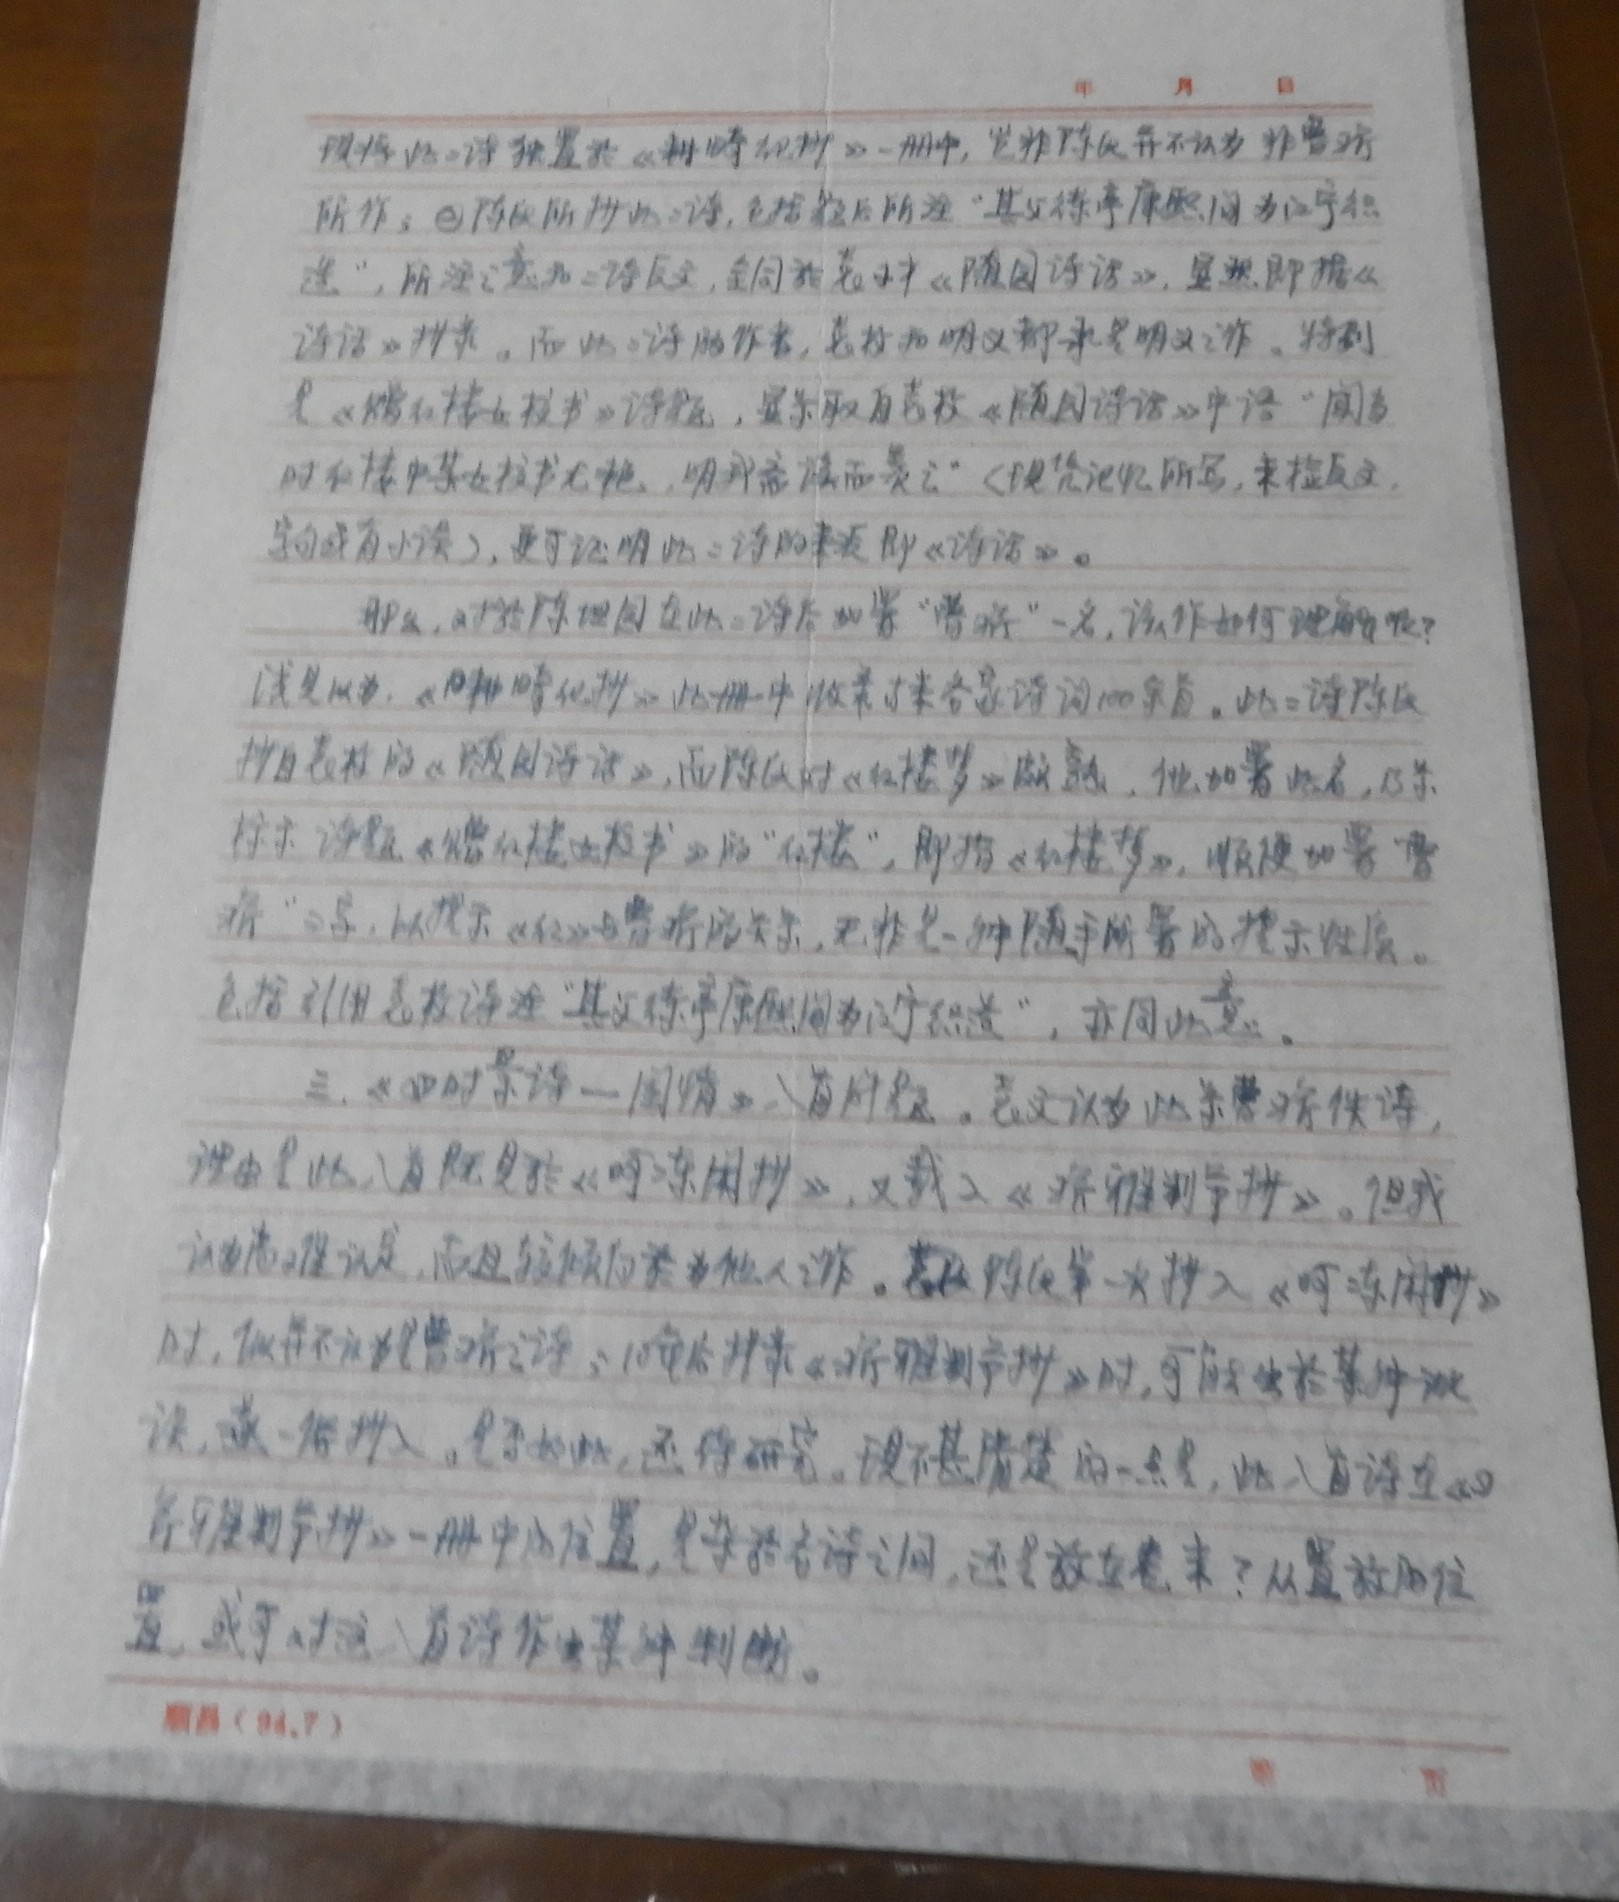 年 月 日
现将此二诗独置于《耕畴偶抄》一册中,岂非陈氏并不认为非曹霑
所作;②陈氏所抄此二诗,包括稿后所注“其父楝亭康熙间为江宁织
造”,所注之意和二诗原文,全同于袁枚《随园诗话》,显然即据《
诗话》抄录。而此二诗的作者,袁枚和明义都承是明义之作。特别
是《赠红楼女校书》诗题,显系取自袁枚《随园诗话》中语“闻当
时红楼中某女校书尤艳,明我斋读而羡之”(现凭记忆所写,未检原文,
字句或有小误),更可证明此二诗的来源即《诗话》。
那么,对于陈 在此二诗后加署“曹霑”一名,该作如何理解呢?
浅见以为,《 》此册中收录了来各家诗词100余首。此二诗陈氏
抄自袁枚的《随园诗话》,而陈氏对《红楼梦》颇熟,他加署此名,乃系
标示诗题《赠红楼女校书》的“红楼”,即指《红楼梦》,顺便加署“曹
霑”二字,以提示《红》与曹霑的关系,无非是一种随手所署的提示性质。
包括引用袁枚诗注“其父楝亭康熙间为江宁织造”,亦同此意。
三、《四时景诗—闺情》八首问题。袁文认为此系曹霑佚诗,
理由是此八首既见于《呵冻闲抄》,又载入《 抄》。但我
认为尚难认定,而且较倾向于为他人之作。 陈氏第一次抄入《呵冻闲抄》
时,似并不认为是曹霑之诗;10年后抄录《 抄》时,可能出于某种
误, 一居抄入。是否如此,还待研究。现不甚清楚的一点是,此八首诗在《
抄》一册中的位置,是杂于各诗之间,还是放在卷末?从置放的位
置,或可对这八首诗作出某种判断。
顺昌(94.7)
第 页